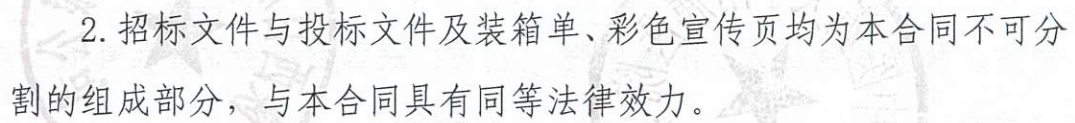 2. 招标文件与投标文件及装箱单、彩色宣传页均为本合同不可分
割的组成部分，与本合同具有同等法律效力。